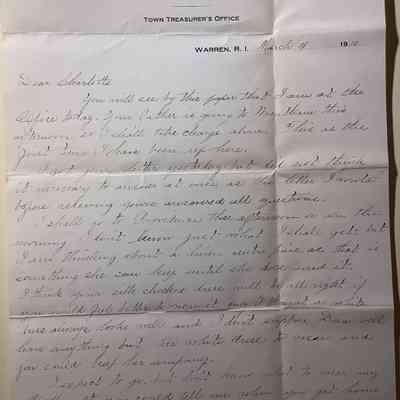 TOWN TREASURER'S OFFICE
WARREN, R. I. March 1910
Dear Charlotte
You will see by this paper that I am at the
office today. Your Father is going to this
afternoon so I shall take charge alone. This is the
first time I have been up here.
I got your letter yesterday but did not think
it necessary to answer at once as the letter I wrote
before receiving yours answered all questions.
I shall go to Providence this afternoon or in the
morning. I don't know just what I shall get but
I am thinking about a linen centre piece as that is
something she can keep until she does need it.
I think your silk checked dress will be all right if
you would feel better to wear it and it is not as white
dress always looks well and I don't suppose will
have anything but her white dress to wear and
you could keep her company.
I expect to go but don't know what to wear my
you could tell me when you get home